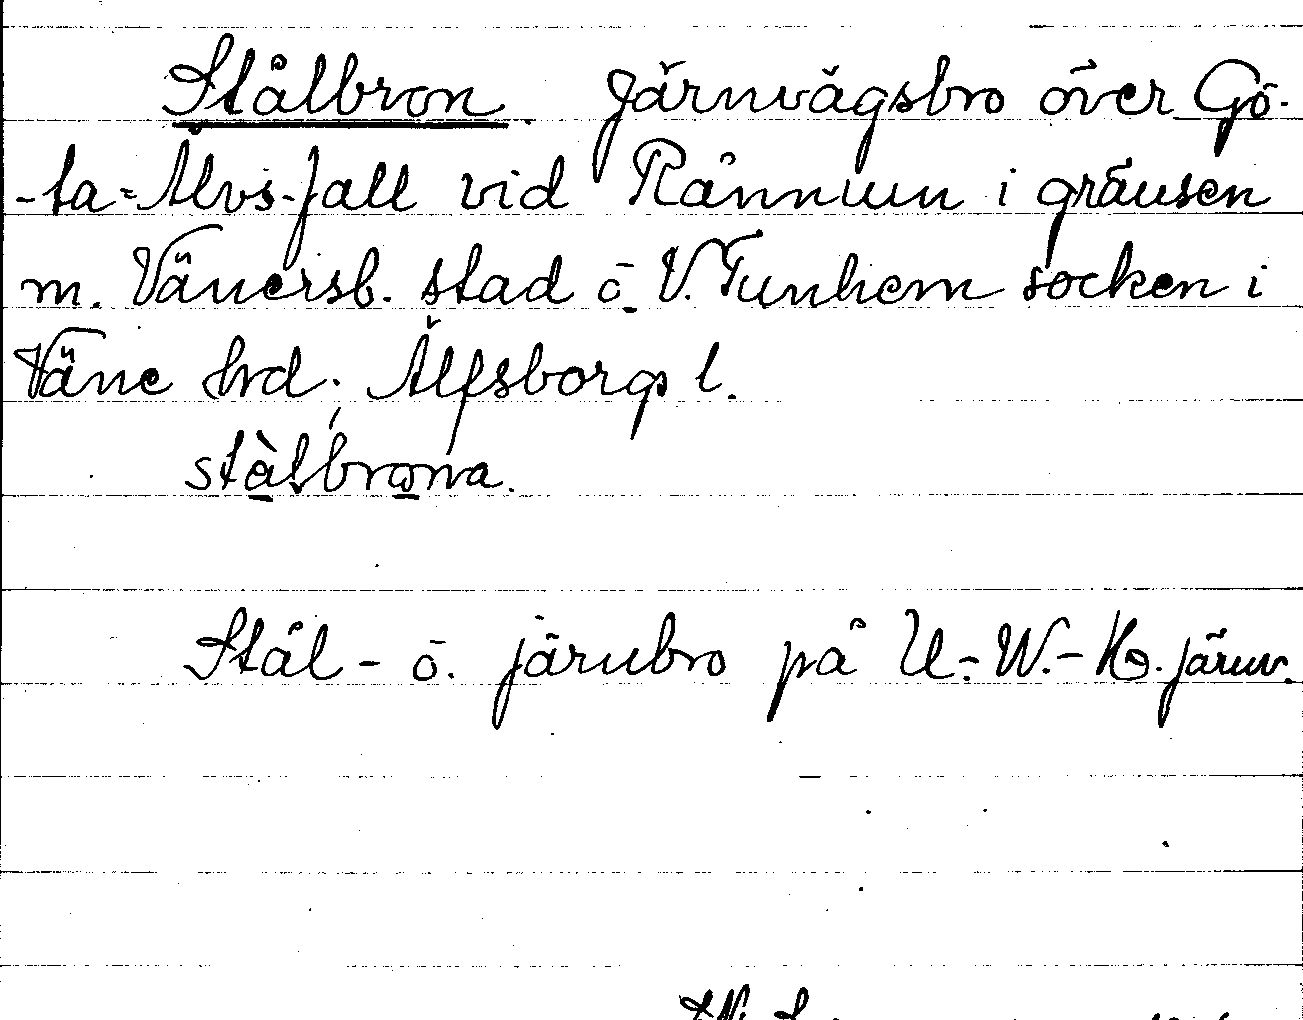 Stålbron. Järnvägsbro över Gö-
-ta-Älvs-fall vid Rånnum i gränsen
m. Vänersb. stad o. V. Tunhem socken i
Väne hrd; Älfsborgs l.
stàlbrona.
Stål- o. järnbro på U.-W.-Hg. järnv.